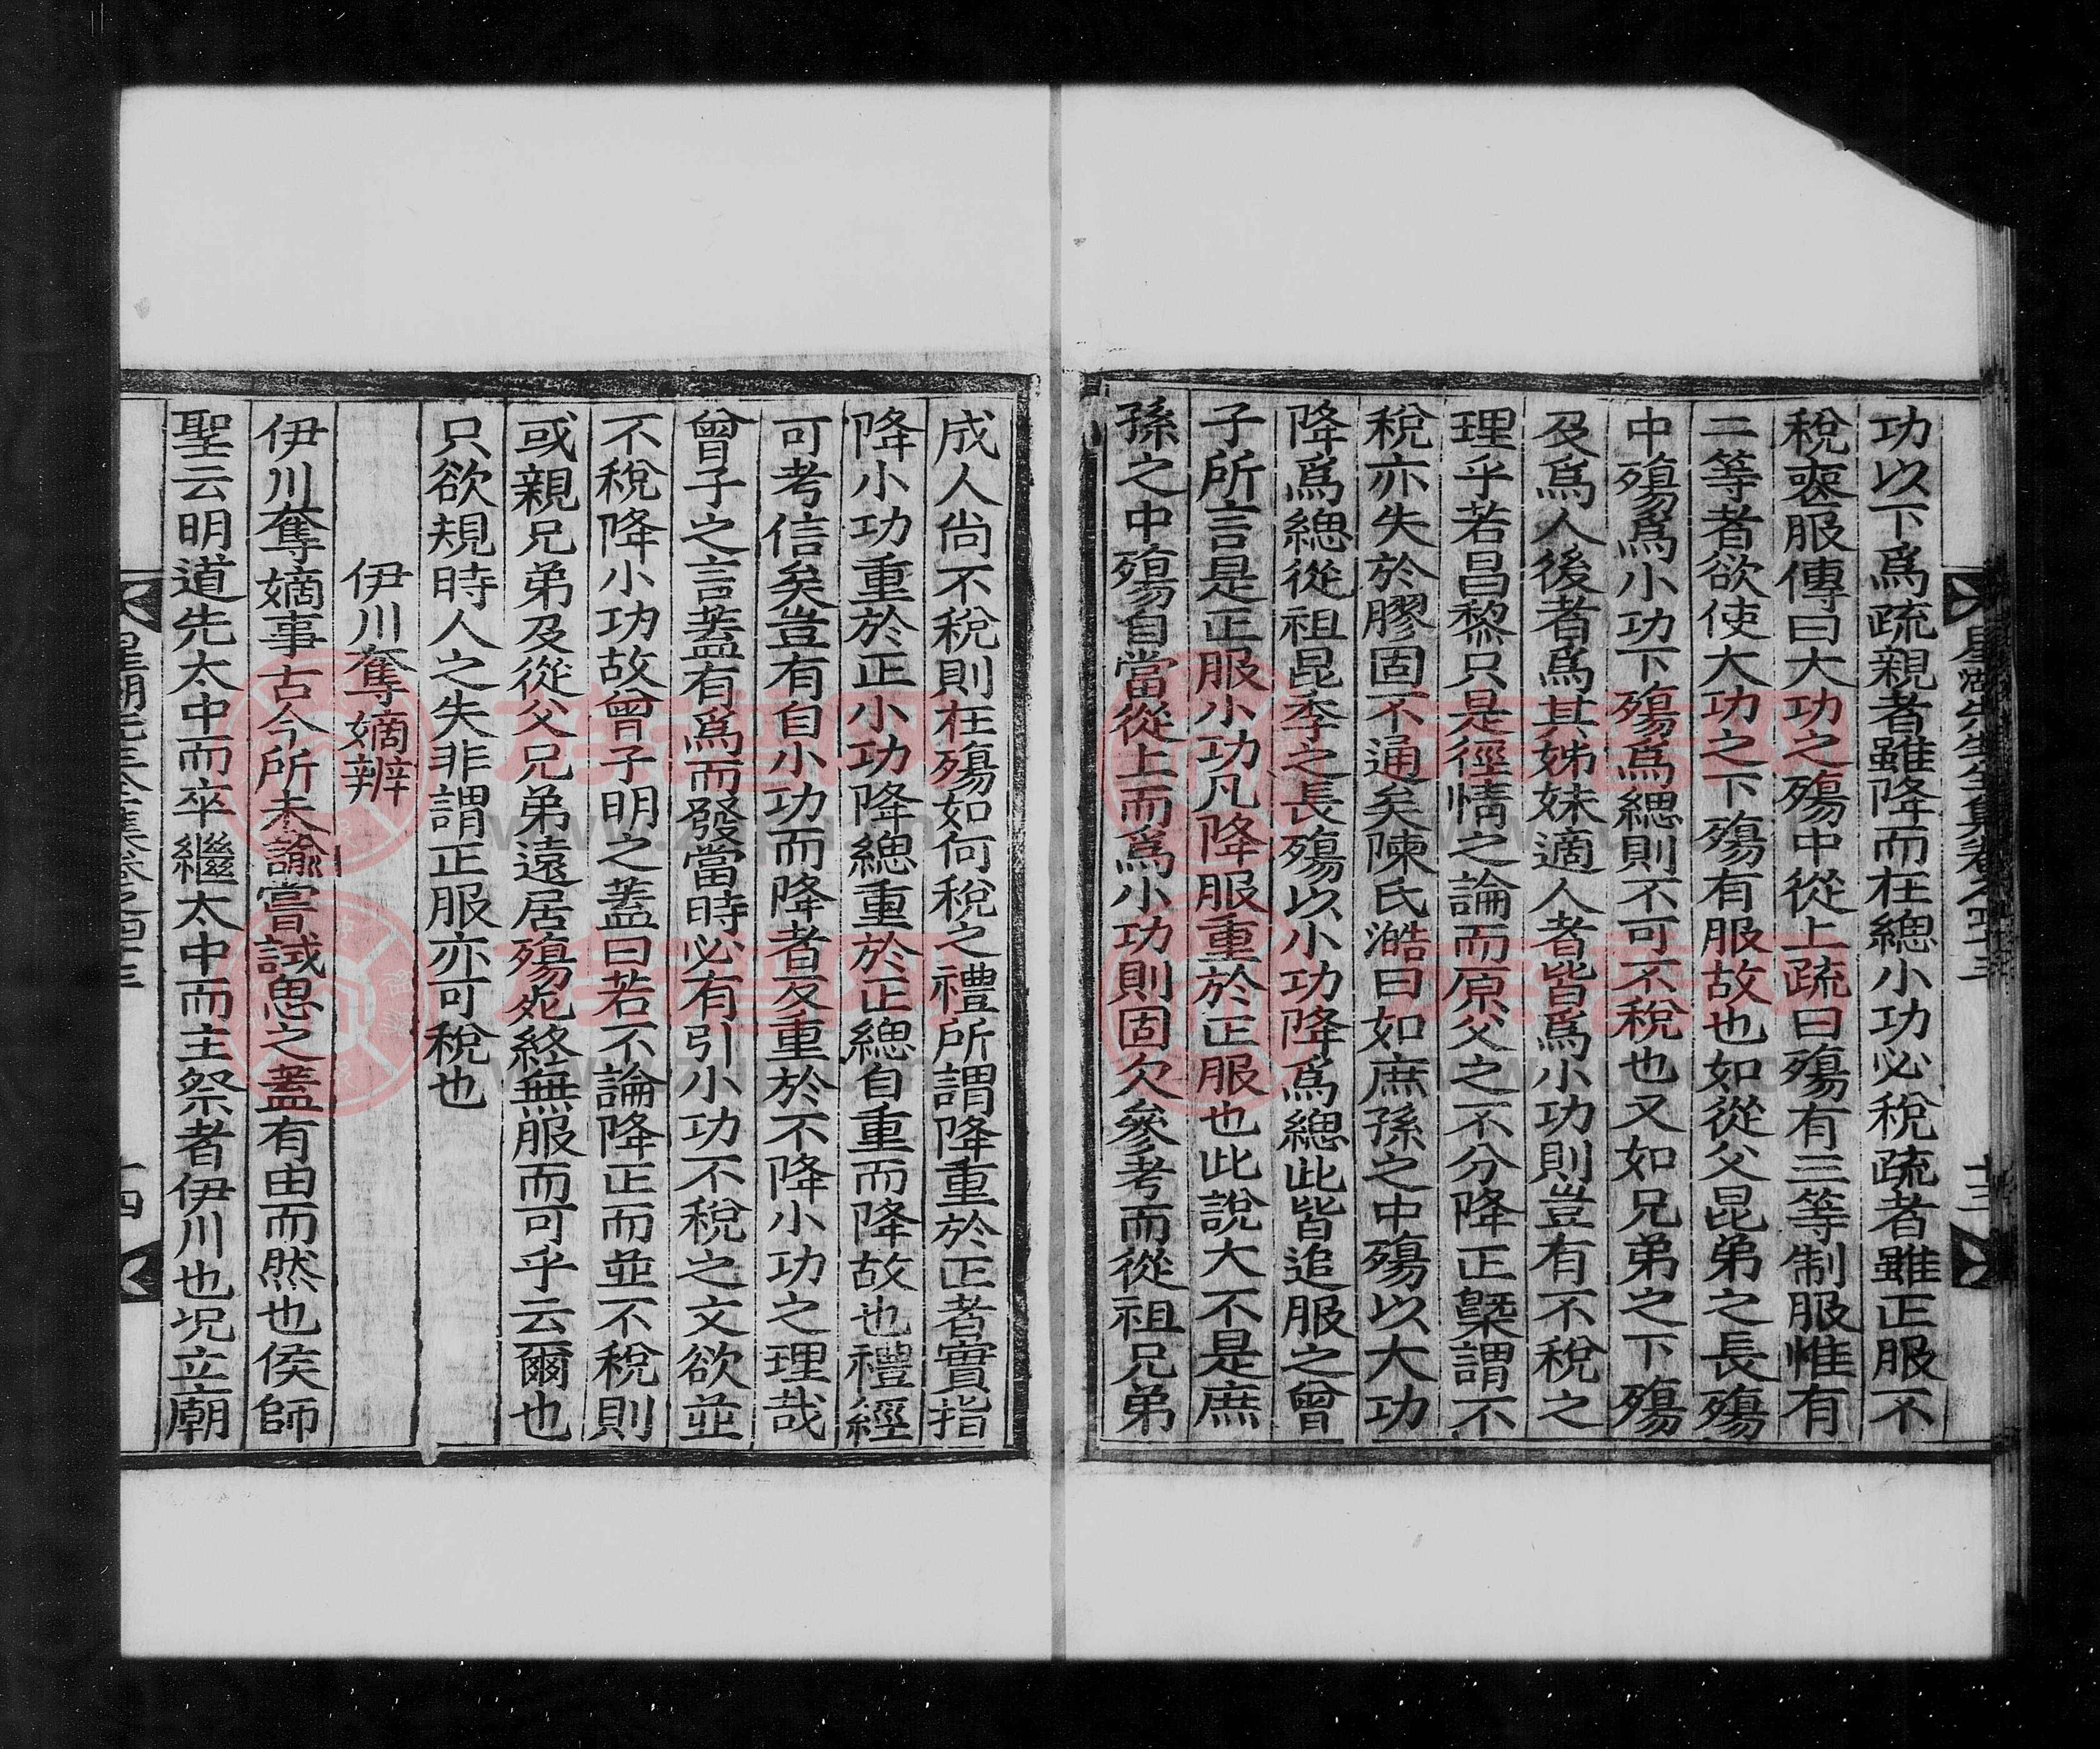 功以下爲疏親者雖降而在緦小功必稅疏者雖正服不
稅喪服傳曰大功之殤中從上疏曰殤有三等制服惟有
二等者欲使大功之下殤有服故也如從父昆弟之長殤
中殤爲小功下殤爲緦則不可不稅也又如兄弟之下殤
及爲人後者爲其姊妹適人者皆爲小功則豈有不稅之
理乎若昌黎只是徑情之論而原父之不分降正槩謂不
稅亦失於膠固不通矣陳氏澔曰如庶孫之中殤以大功
降爲緦從祖昆季之長殤以小功降爲緦此皆追服之曾
子所言是正服小功凡降服重於正服也此說大不是庶
孫之中殤自當從上而爲小功則固欠參考而從祖兄弟
星湖先生全集卷之四十三 十三
成人尙不稅則在殤如何稅之禮所謂降重於正者實指
降小功重於正小功降緦重於正緦自重而降故也禮經
可考信矣豈有自小功而降者反重於不降小功之理哉
曾子之言蓋有爲而發當時必有引小功不稅之文欲並
不稅降小功故曾子明之蓋曰若不論降正而並不稅則
或親兄弟及從父兄弟遠居殤死終無服而可乎云爾也
只欲規時人之失非謂正服亦可稅也
伊川奪嫡辨
伊川奪嫡事古今所未諭嘗試思之蓋有由而然也侯師
聖云明道先太中而卒繼太中而主祭者伊川也況立廟
星湖先生全集卷之四十三 十四